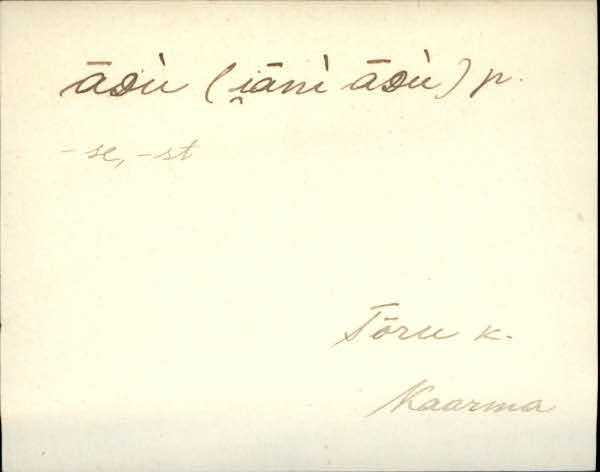 āᴅù (i̯ānì āᴅù) p.
-se, -st
Tõru k.
Kaarma